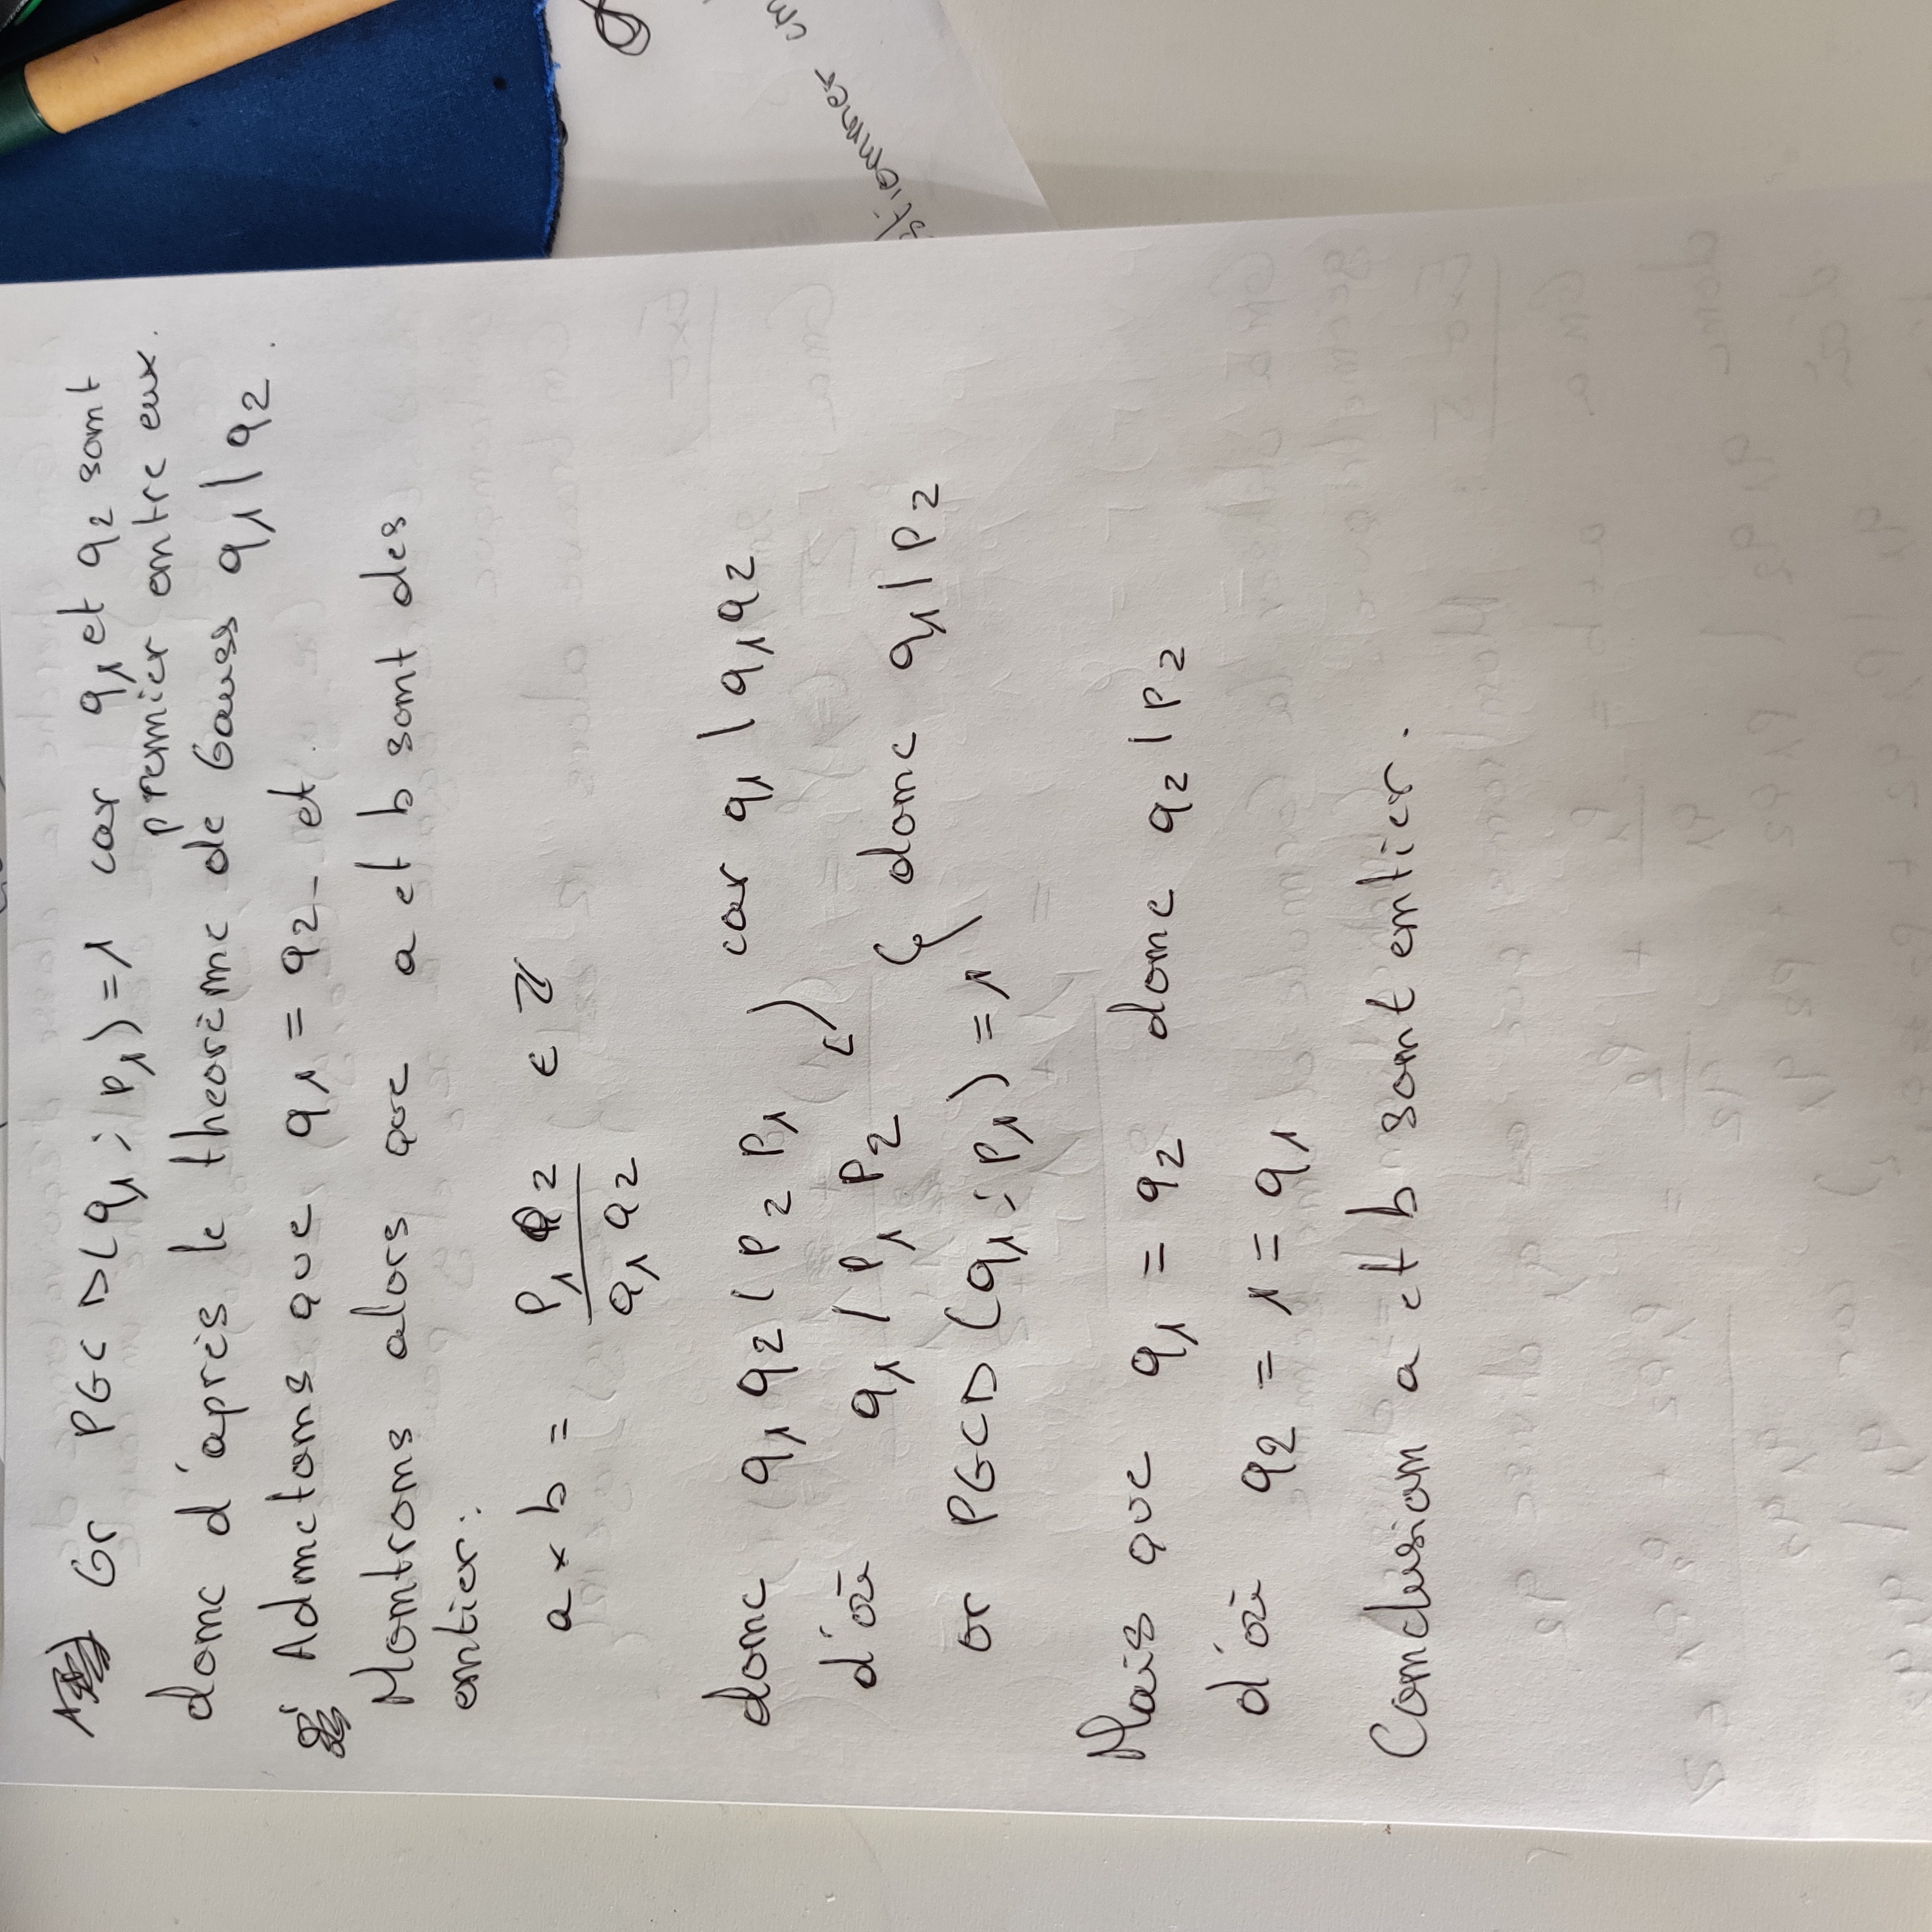 Or PGCD(q1 ; p1) = 1 car q1 et q2 sont
premier entre eux.
donc d'après le theorème de Gauss q1 | q2.
Admetons que q1 = q2 et
Montrons alors que a et b sont des
entier :
a × b = p1 p2 / q1 q2 ∈ ℤ
donc q1 q2 | p2 p1 car q1 | q1 q2
d'où q1 | p1 p2
donc q1 | p2
or PGCD (q1 ; p1) = 1
Mais que q1 = q2 donc q2 | p2
d'où q2 = 1 = q1
Conclusion a et b sont entier.